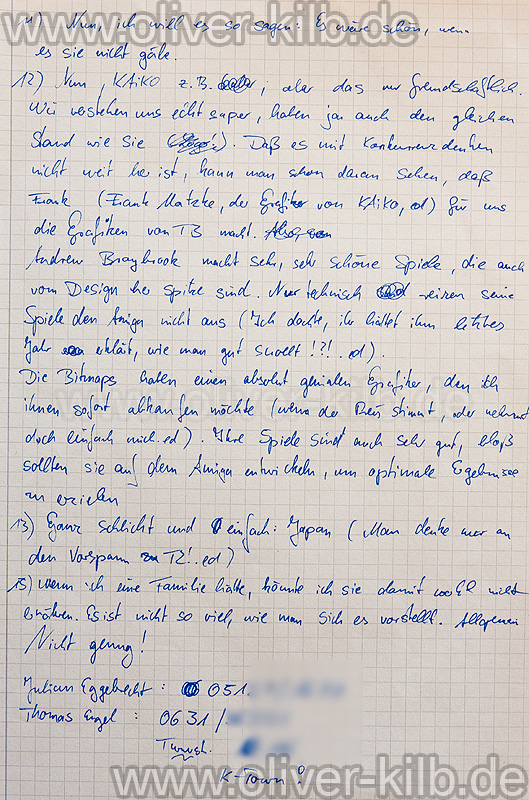 www.oliver-kilb.de
11) Nun, ich will es so sagen: Es wäre schön, wenn
es sie nicht gäbe.
12) Nun, KAIKO z.B. , aber das nur freundschaftlich.
Wir verstehen uns echt super, haben ja auch den gleichen
Stand wie Sie . Daß es mit Konkurrenzdenken
nicht weit her ist, kann man schon daran sehen, daß
Frank (Frank Matzke, der Grafiker von KAIKO, ed) für uns
die Grafiken von TB macht.
Andrew Braybrook macht sehr, sehr schöne Spiele, die auch
vom Design her Spitze sind. Nur technisch reizen seine
Spiele den Amiga nicht aus (Ich dachte, ihr hättet ihm letztes
Jahr erklärt, wie man gut scrollt !?!. ed).
Die Bitmaps haben einen absolut genialen Grafiker, den ich
ihnen sofort abkaufen möchte (wenn der Preis stimmt, oder nehmt
doch einfach mich. ed). Ihre Spiele sind auch sehr gut, bloß
sollten sie auf dem Amiga entwickeln, um optimale Ergebnisse
zu erzielen
13) Ganz schlicht und einfach: Japan (Man denke nur an
den Vorspann zu T2!. ed)
15) Wenn ich eine Familie hätte, könnte ich sie damit wohl nicht
ernähren. Es ist nicht so viel, wie man sich es vorstellt. Allgemein
Nicht genug!
Julian Eggebrecht : 051
Thomas Engel : 0631/
K-Town!
www.oliver-kilb.de